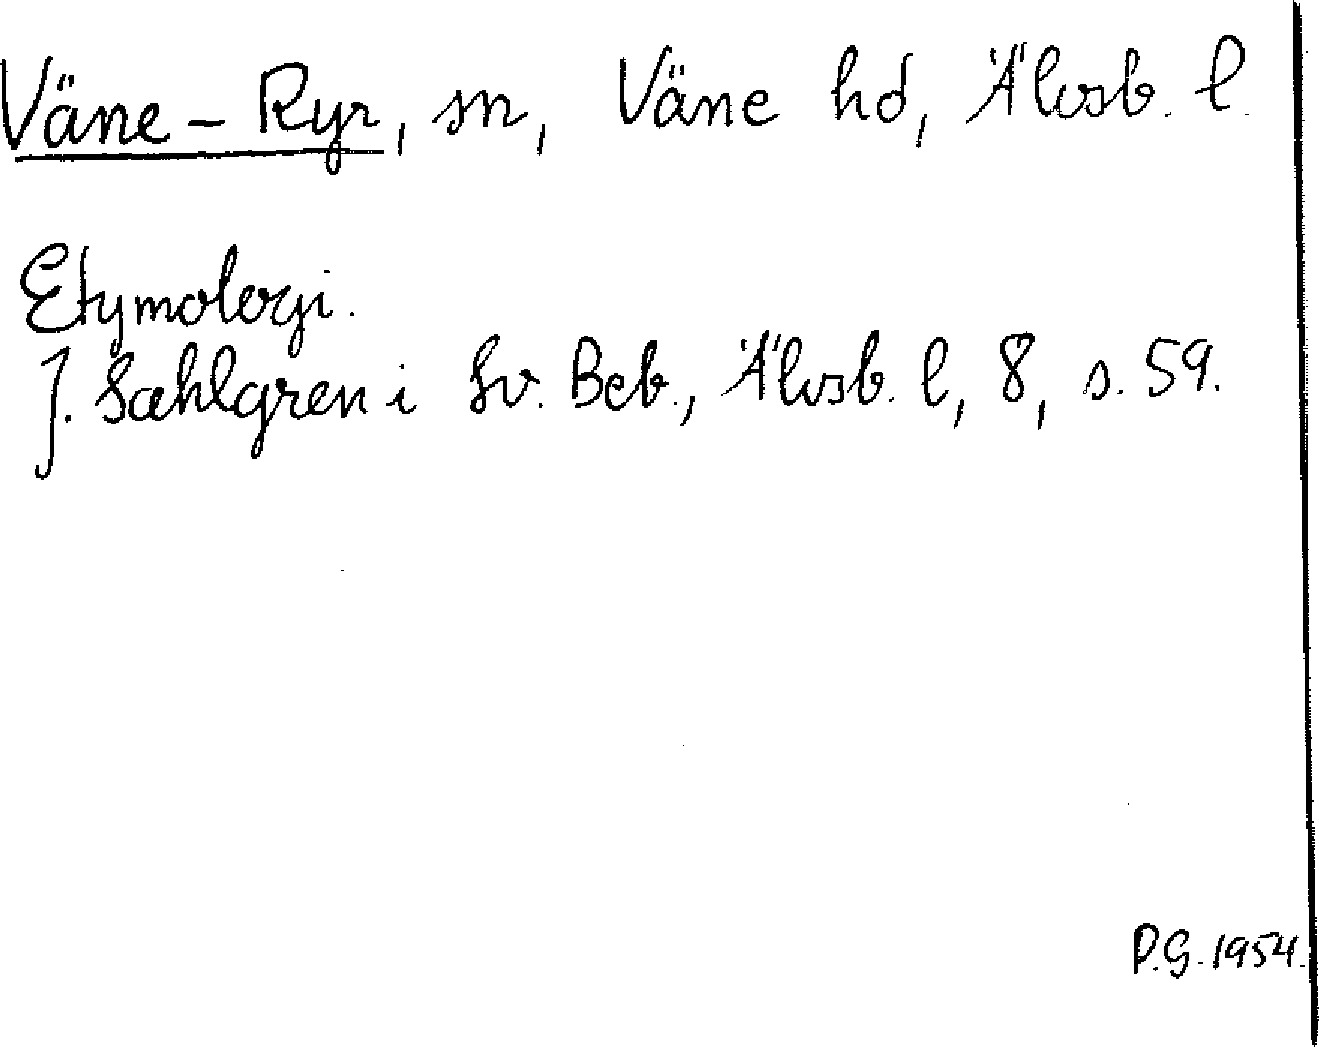 Väne-Ryr, sn, Väne hd, Älvsb. l.
Etymologi.
J. Sahlgren i Sv. Beb., Älvsb. l, 8, s. 59.
P.G. 1954.